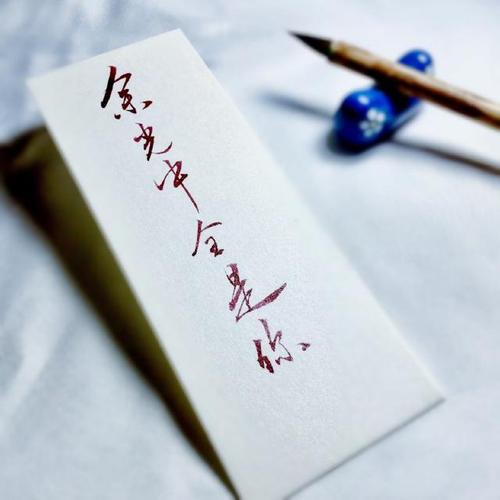 余光中全是你